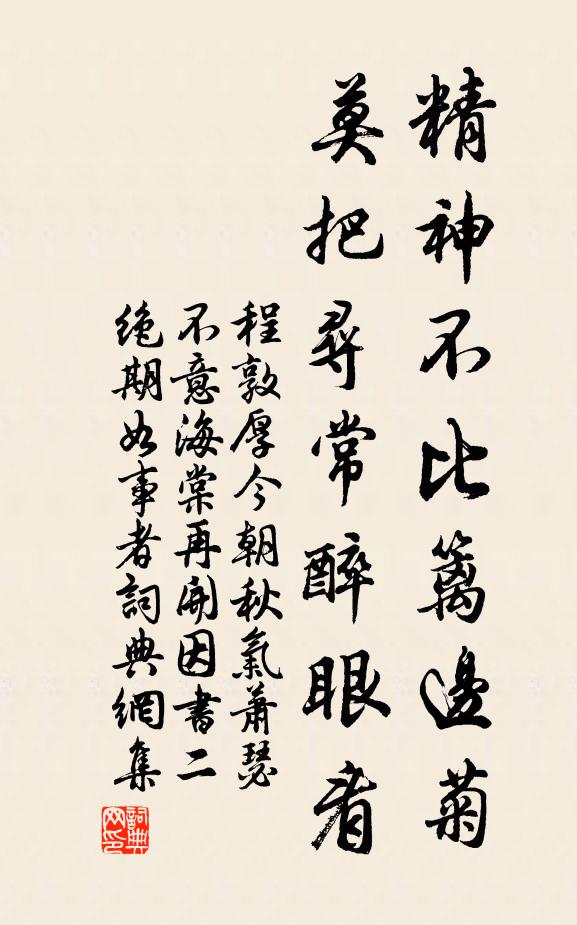 精神不比籬邊菊
莫把尋常醉眼看
程敦厚今朝秋氣蕭瑟
不意海棠再開因書二
絕期如事者詞典網集
詞典
网印